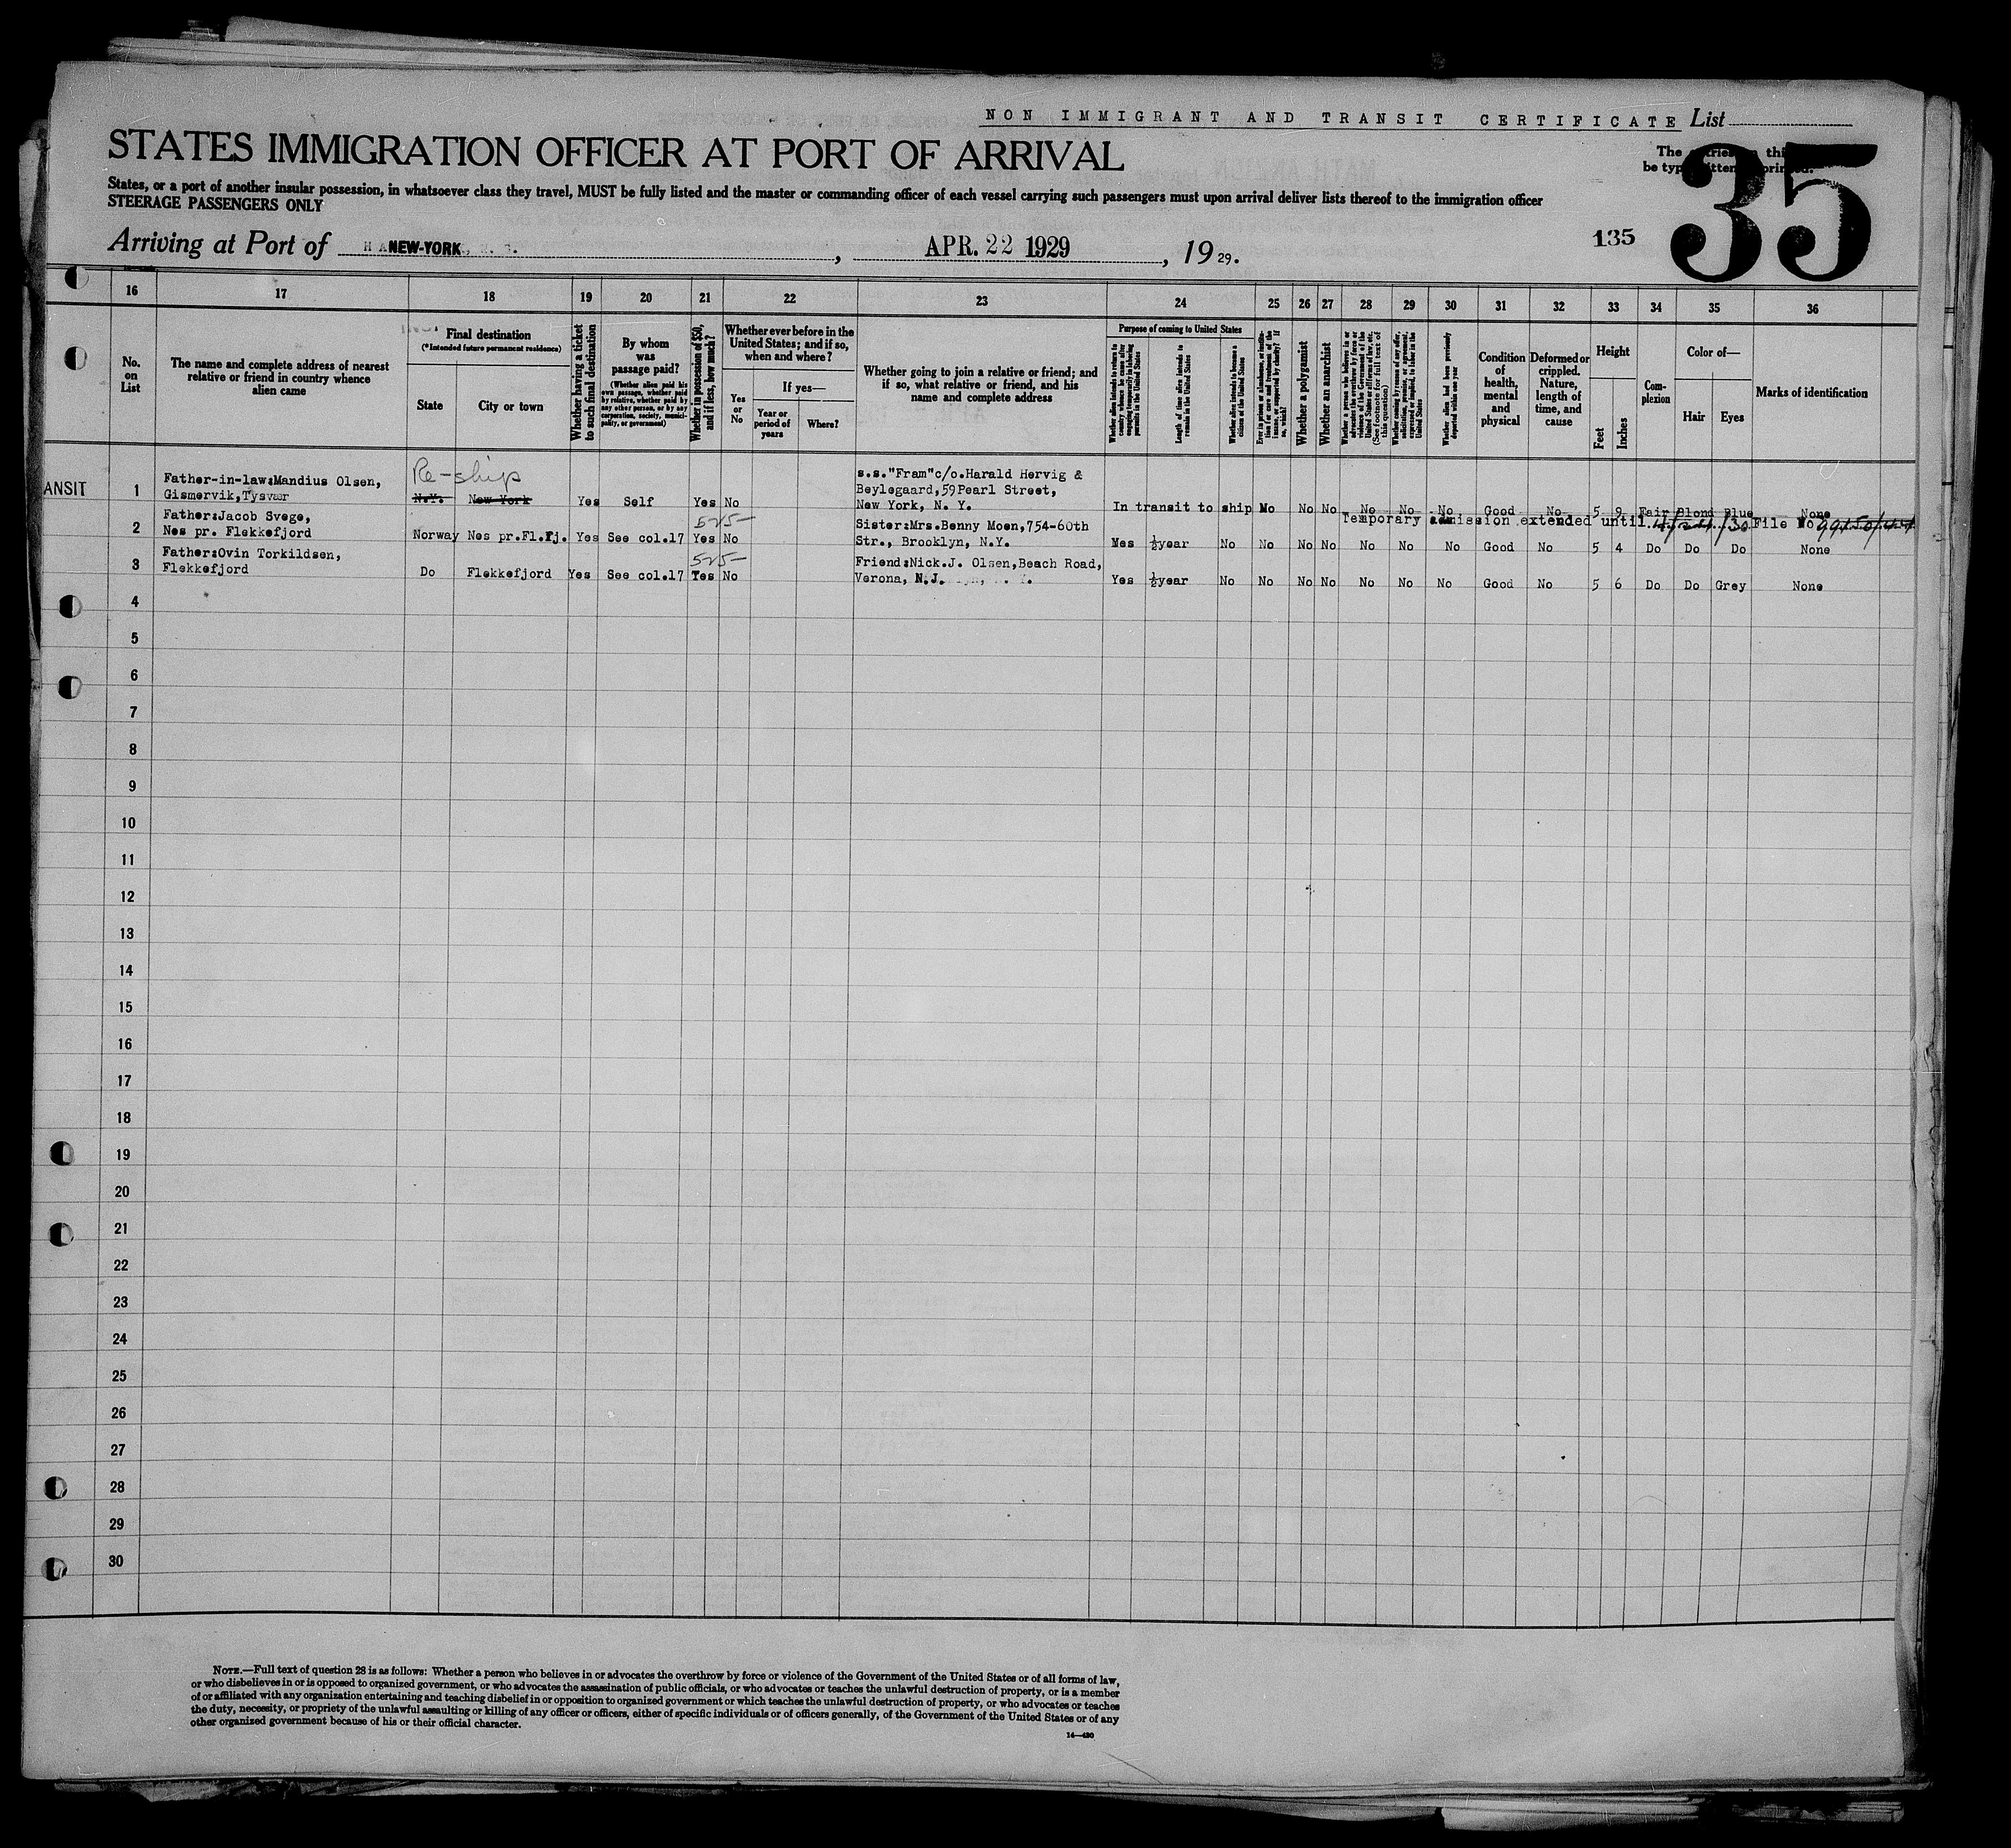 NON IMMIGRANT AND TRANSIT CERTIFICATE List
STATES IMMIGRATION OFFICER AT PORT OF ARRIVAL
35
States, or a port of another insular possession, in whatsoever class they travel, MUST be fully listed and the master or commanding officer of each vessel carrying such passengers must upon arrival deliver lists thereof to the immigration officer
STEERAGE PASSENGERS ONLY
Arriving at Port of NEW-YORK, APR. 22 1929, 1929.
135
16 17 18 19 20 21 22 23 24 25 26 27 28 29 30 31 32 33 34 35 36
No. on List
The name and complete address of nearest relative or friend in country whence alien came
Final destination
(*Intended future permanent residence)
State
City or town
Whether having a ticket to such final destination
By whom was passage paid?
(Whether alien paid his own passage, whether paid by relative, whether paid by any other person, or by any corporation, society, municipality, or government)
Whether in possession of $50, and if less, how much?
Whether ever before in the United States; and if so, when and where?
Yes or No
If yes—
Year or period of years
Where?
Whether going to join a relative or friend; and if so, what relative or friend, and his name and complete address
Purpose of coming to United States
Length of time alien intends to remain in the United States
Whether alien intends to become a citizen of the United States
Whether a polygamist
Whether an anarchist
Whether alien had been previously deported within one year
Condition of health, mental and physical
Deformed or crippled. Nature, length of time, and cause
Height
Feet
Inches
Complexion
Color of—
Hair
Eyes
Marks of identification
ANSIT
1 Father-in-law:Mandius Olsen, Gismervik, Tysvær
Re-ship
N.Y. New York Yes Self Yes No
s.s."Fram"c/o.Harald Hervig & Beylegaard,59 Pearl Street, New York, N. Y.
In transit to ship No No No No No No Good No 5 9 Fair Blond Blue None
Temporary admission extended until 4/24/30 File No
2 Father:Jacob Svege, Nes pr. Flekkefjord
Norway Nes pr.Fl.fj. Yes See col.17 Yes No
525-
Sister:Mrs.Benny Moen,754-60th Str., Brooklyn, N.Y.
Yes ½year No No No No No No No Good No 5 4 Do Do Do None
3 Father:Ovin Torkildsen, Flekkefjord
Do Flekkefjord Yes See col.17 Yes No
525-
Friend:Nick.J. Olsen,Beach Road, Verona, N.J.
Yes ½year No No No No No No No Good No 5 6 Do Do Grey None
4
5
6
7
8
9
10
11
12
13
14
15
16
17
18
19
20
21
22
23
24
25
26
27
28
29
30
NOTE.—Full text of question 28 is as follows: Whether a person who believes in or advocates the overthrow by force or violence of the Government of the United States or of all forms of law,
or who disbelieves in or is opposed to organized government, or who advocates the assassination of public officials, or who advocates or teaches the unlawful destruction of property, or is a member
of or affiliated with any organization entertaining and teaching disbelief in or opposition to organized government or which teaches the unlawful destruction of property, or who advocates or teaches
the duty, necessity, or propriety of the unlawful assaulting or killing of any officer or officers, either of specific individuals or of officers generally, of the Government of the United States or of any
other organized government because of his or their official character.
14—430